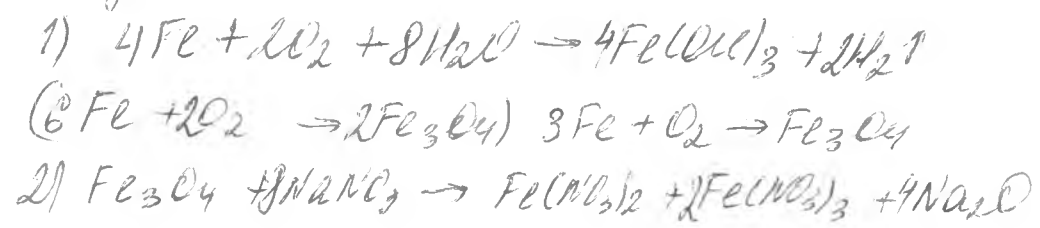 1) 4Fe + 2O₂ + 8H₂O → 4Fe(OH)₃ + 2H₂↑
(6Fe + 2O₂ → 2Fe₃O₄) 3Fe + O₂ → Fe₃O₄
2) Fe₃O₄ + 8NaNO₃ → Fe(NO₃)₂ + 2Fe(NO₃)₃ + 4Na₂O